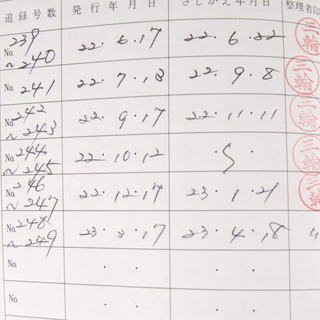 追録号数 発行年月日 さしかえ年月日 整理者印
No. 239~240 22・6・17 22・6・22 三輪
No. 241 22・7・13 22・9・8 三輪
No. 242~243 22・9・17 22・11・11 三輪
No. 244~245 22・10・12 ・5・ 三輪
No. 246~247 22・12・17 23・1・21 三輪
No. 248~249 23・3・17 23・4・18 〃
No. ・ ・ ・ ・
No. ・ ・ ・ ・